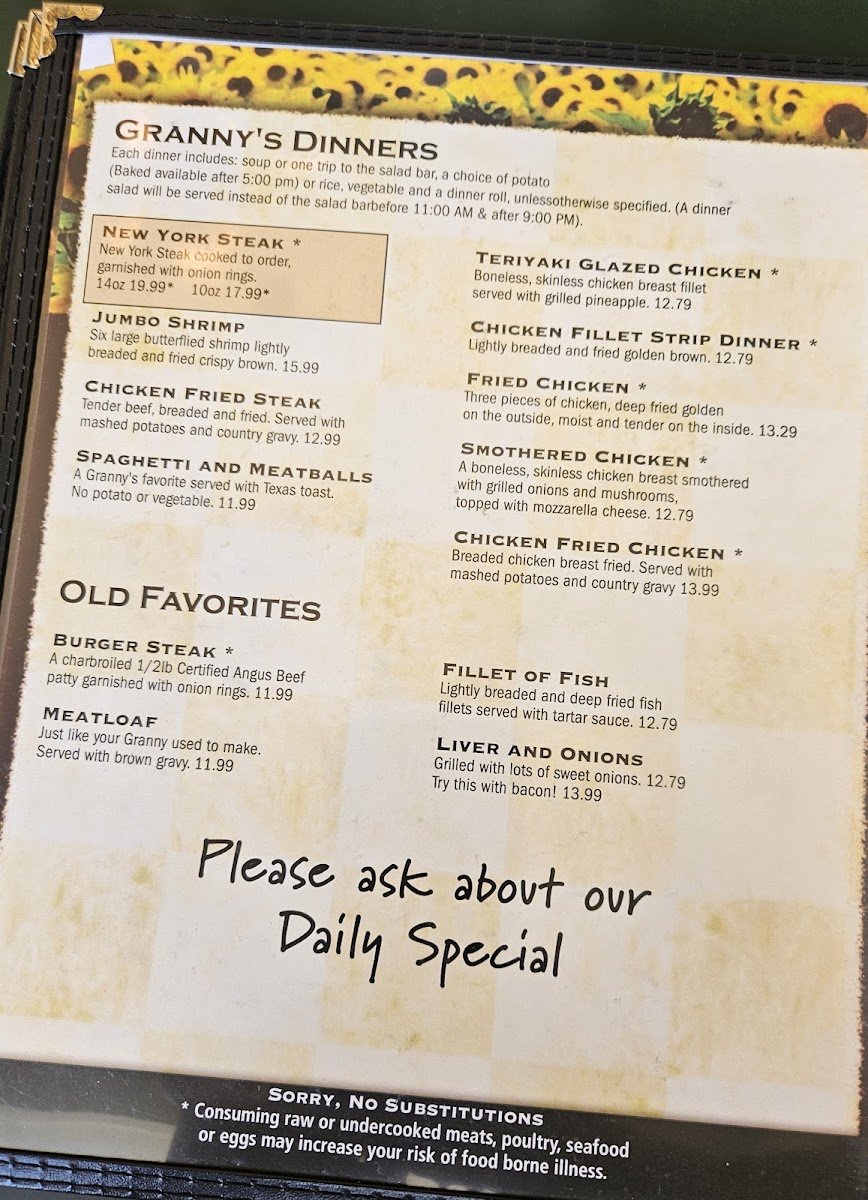 GRANNY'S DINNERS
Each dinner includes: soup or one trip to the salad bar, a choice of potato
(Baked available after 5:00 pm) or rice, vegetable and a dinner roll, unlessotherwise specified. (A dinner
salad will be served instead of the salad barbefore 11:00 AM & after 9:00 PM).
NEW YORK STEAK *
New York Steak cooked to order,
garnished with onion rings.
14oz 19.99* 10oz 17.99*
JUMBO SHRIMP
Six large butterflied shrimp lightly
breaded and fried crispy brown. 15.99
CHICKEN FRIED STEAK
Tender beef, breaded and fried. Served with
mashed potatoes and country gravy. 12.99
SPAGHETTI AND MEATBALLS
A Granny's favorite served with Texas toast.
No potato or vegetable. 11.99
TERIYAKI GLAZED CHICKEN *
Boneless, skinless chicken breast fillet
served with grilled pineapple. 12.79
CHICKEN FILLET STRIP DINNER *
Lightly breaded and fried golden brown. 12.79
FRIED CHICKEN *
Three pieces of chicken, deep fried golden
on the outside, moist and tender on the inside. 13.29
SMOTHERED CHICKEN *
A boneless, skinless chicken breast smothered
with grilled onions and mushrooms,
topped with mozzarella cheese. 12.79
CHICKEN FRIED CHICKEN *
Breaded chicken breast fried. Served with
mashed potatoes and country gravy 13.99
OLD FAVORITES
BURGER STEAK *
A charbroiled 1/2lb Certified Angus Beef
patty garnished with onion rings. 11.99
MEATLOAF
Just like your Granny used to make.
Served with brown gravy. 11.99
FILLET OF FISH
Lightly breaded and deep fried fish
fillets served with tartar sauce. 12.79
LIVER AND ONIONS
Grilled with lots of sweet onions. 12.79
Try this with bacon! 13.99
Please ask about our
Daily Special
SORRY, NO SUBSTITUTIONS
* Consuming raw or undercooked meats, poultry, seafood
or eggs may increase your risk of food borne illness.